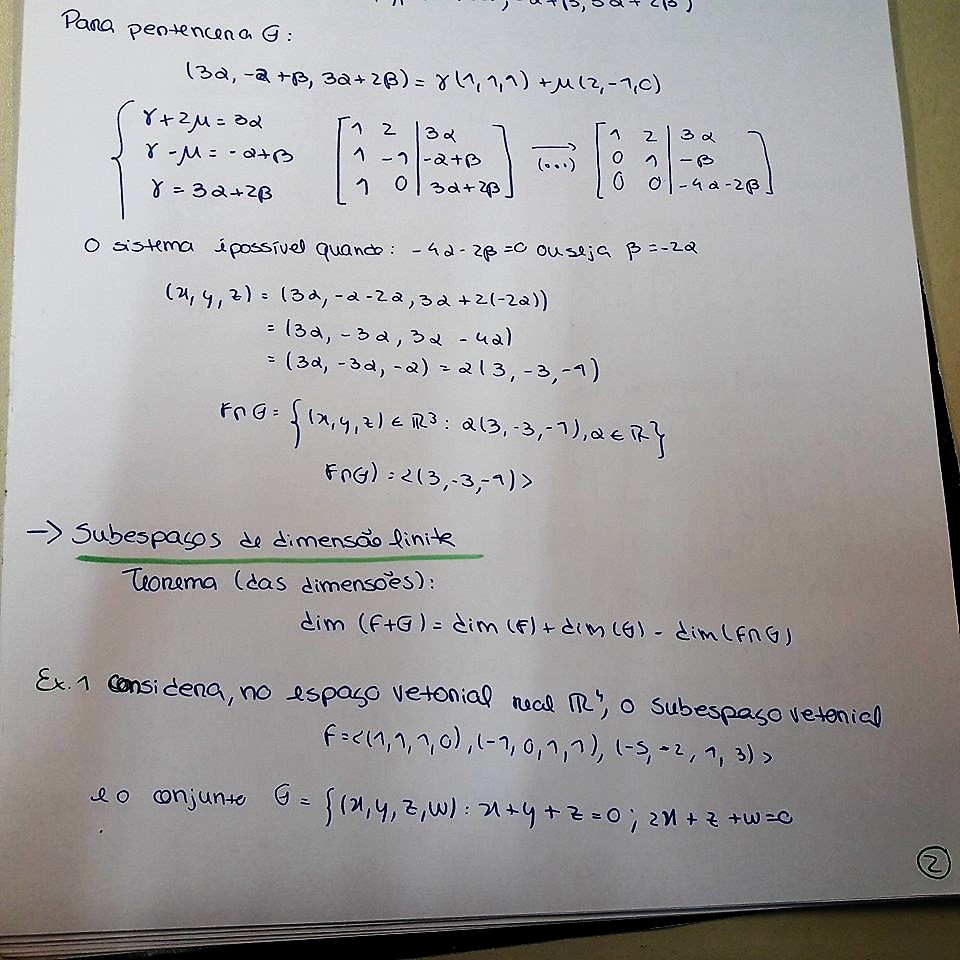 α+β, 3α+2β)
Para pertencer a G:
(3α, -α+β, 3α+2β) = γ(1,1,1) + μ(2,-1,0)
γ+2μ = 3α
γ-μ = -α+β
γ = 3α+2β
[1 2 | 3α
1 -1 | -α+β
1 0 | 3α+2β]
→ (...)
[1 2 | 3α
0 1 | -β
0 0 | -4α-2β]
O sistema é possível quando: -4α-2β=0 ou seja β=-2α
(x, y, z) = (3α, -α-2α, 3α+2(-2α))
= (3α, -3α, 3α-4α)
= (3α, -3α, -α) = α(3, -3, -1)
F∩G = {(x,y,z) ∈ ℝ³ : α(3,-3,-1), α ∈ ℝ}
F∩G) = <(3,-3,-1)>
→ Subespaços de dimensão finite
Teorema (das dimensões):
dim (F+G) = dim (F) + dim (G) - dim (F∩G)
Ex.1 Considera, no espaço vetorial real ℝ⁴, o subespaço vetorial
F=<(1,1,1,0), (-1,0,1,1), (-5,-2,1,3)>
e o conjunto G = {(x,y,z,w) : x+y+z=0 ; 2x+z+w=0
2